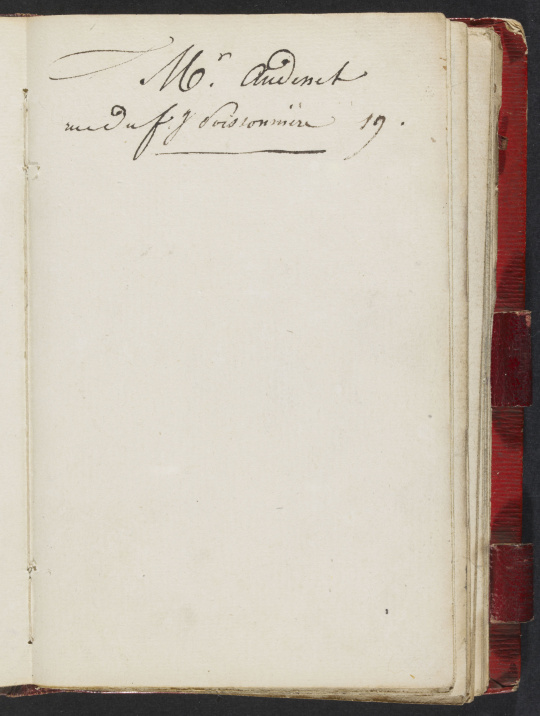 Mr. Audenet
rue du f g Poissonnière 19.